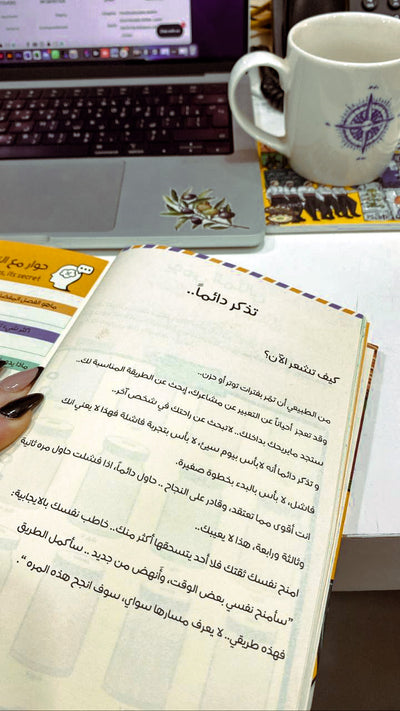 تذكر دائماً..
كيف تشعر الآن؟
من الطبيعي أن تمر بفترات توتر أو حزن..
وقد تعجز أحياناً عن التعبير عن مشاعرك، إبحث عن الطريقة المناسبة لك..
ستجد مايريحك بداخلك.. لا تبحث عن راحتك في شخص آخر..
و تذكر دائما أنه لا بأس بيوم سيئ، لا بأس بتجربة فاشلة فهذا لا يعني انك
فاشل، لا بأس بالبدء بخطوة صغيرة.
انت أقوى مما تعتقد، وقادر على النجاح .. حاول دائماً، اذا فشلت حاول مره ثانية
وثالثة ورابعة، هذا لا يعيبك..
امنح نفسك ثقتك فلا أحد يتسحقها أكثر منك.. خاطب نفسك بالايجابية:
"سأمنح نفسي بعض الوقت، وأنهض من جديد .. سأكمل الطريق
فهذه طريقي.. لا يعرف مسارها سواي، سوف انجح هذه المره".
حوار مع
its secret
ماهو الفصل المفضل